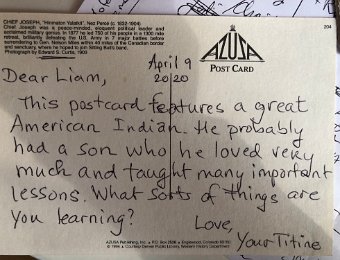 CHIEF JOSEPH, "Hinmaton Yalatkit", Nez Perce (c. 1832-1904)
Chief Joseph was a peace-minded, eloquent political leader and
acclaimed military genius. In 1877 he led 750 of his people in a 1300 mile
retreat, brilliantly defeating the U.S. Army in 7 major battles before
surrendering to Gen. Nelson Miles within 40 miles of the Canadian border
and sanctuary, where he hoped to join Sitting Bull's band.
Photograph by Edward S. Curtis, 1903
204
AZUSA
POST CARD
April 9
2020
Dear Liam,
This postcard features a great
American Indian. He probably
had a son who he loved very
much and taught many important
lessons. What sorts of things are
you learning?
Love,
Your Titine
AZUSA Publishing, Inc. • P.O. Box 2526 • Englewood, Colorado 80150
Courtesy Denver Public Library, Western History Department